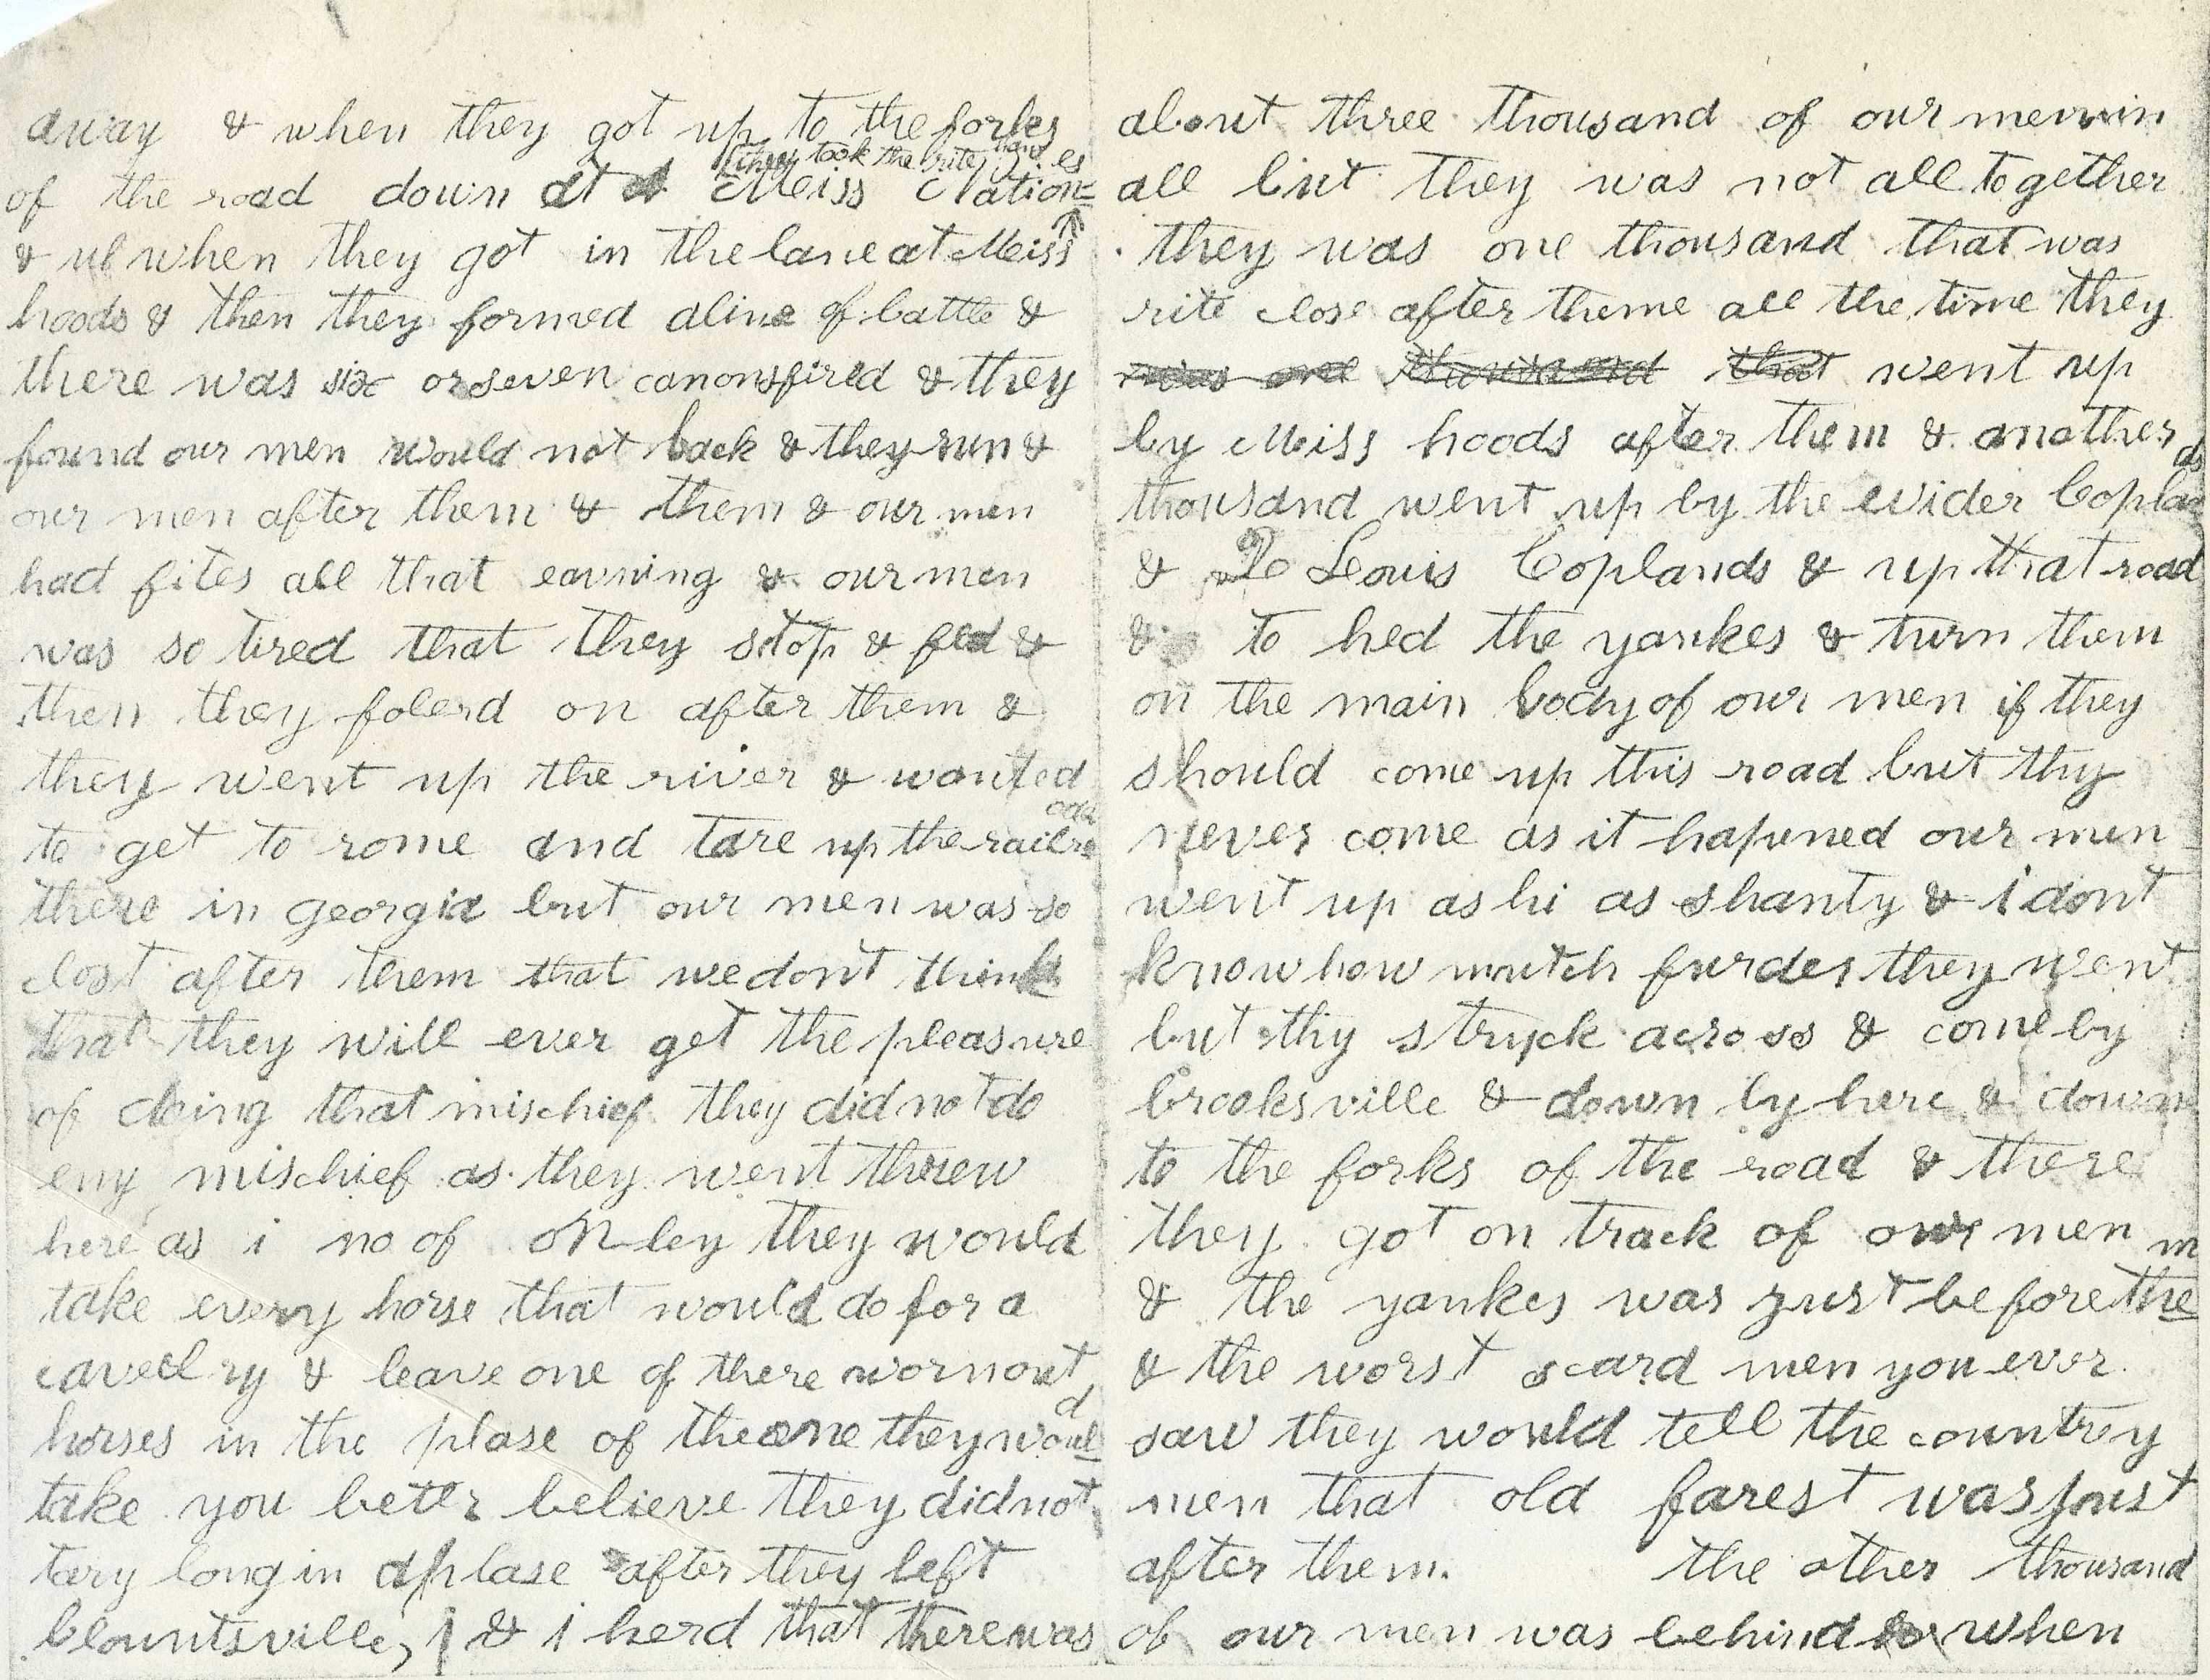 away & when they got up to the forks
(they took the rite hand)
of the road down at Miss Nationes
& when they got in the lane at Miss
hoods & then they formed aline of battle &
there was six or seven canons fired & they
found our men would not back & they run &
our men after them & them & our men
had fites all that eavning & our men
was so tired that they stop & fed &
then they folerd on after them &
they went up the river & wanted
to get to rome and tare up the railroad
there in georgia but our men was so
clost after them that we dont think
that they will ever get the pleasure
of doing that mischief they did not do
eny mischief as they went threw
here as i no of onley they would
take every horse that would do for a
cavellry & leave one of there wornout
horses in the plase of the one they would
take you beter believe they did not
tary long in aplase after they left
blountsville, & i herd that there was
about three thousand of our men in
all but they was not all together
they was one thousand that was
rite close after theme all the time they
was one thousand that went up
by Miss hoods after them & another
thousand went up by the wider Coplands
& Louis Coplands & up that road
& to hed the yankes & turn them
on the main body of our men if they
should come up this road but thy
never come as it hapened our men
went up as hi as shanty & i dont
know how mutch furder they went
but thy struck across & come by
brooksville & down by here & down
to the forks of the road & there
they got on track of our men
& the yankes was just before them
& the worst scard men you ever
saw they would tell the countrey
men that old farest was just
after them. the other thousand
of our men was behind when